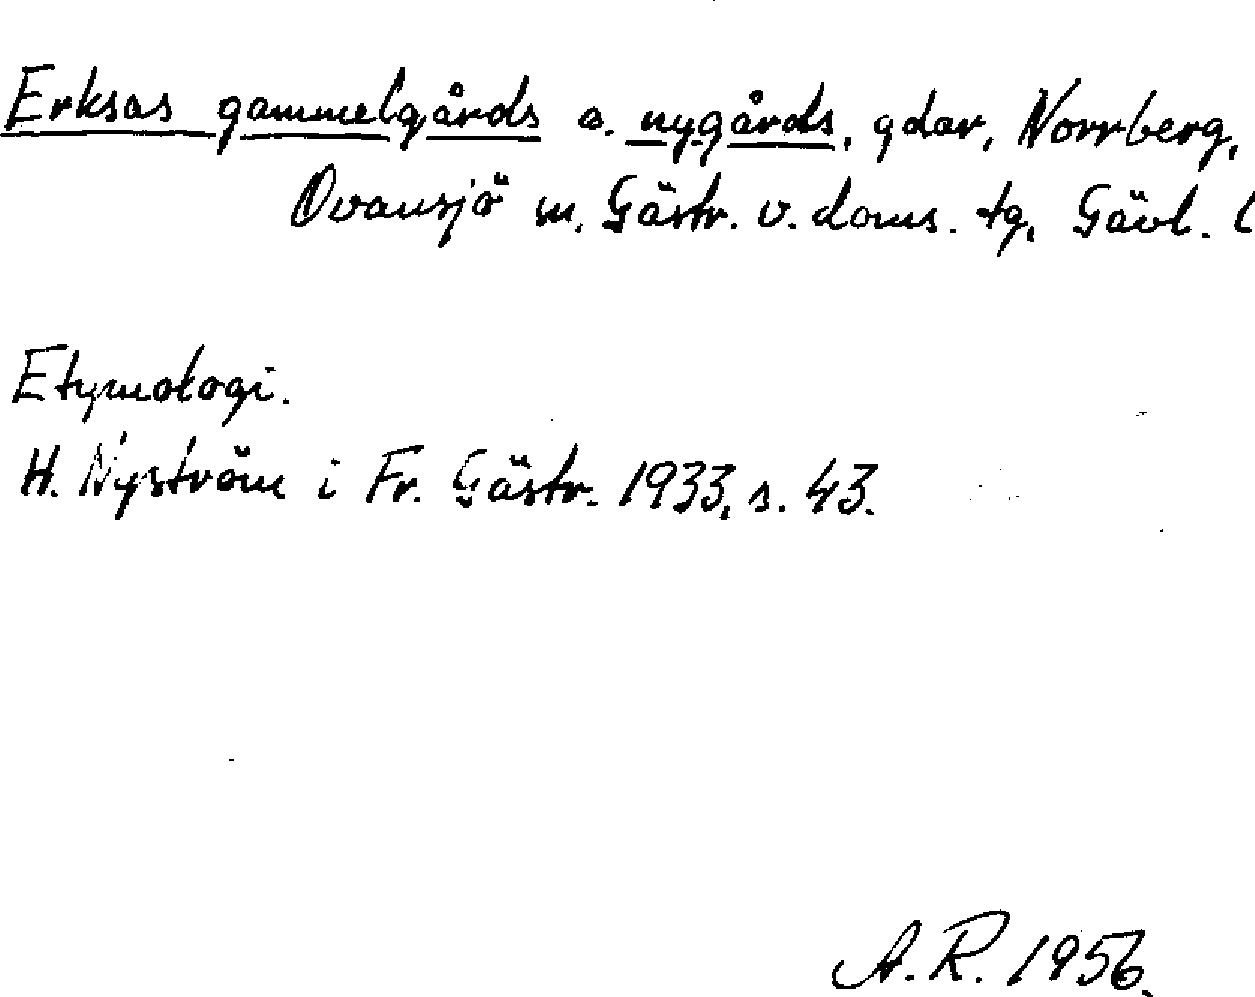 Erksas gammelgårds o. nygårds, gdar, Norrberg,
Ovansjö sn. Gästr. v. doms. tg, Gävl. l
Etymologi.
H. Nyström i Fr. Gästr. 1933, s. 43.
A. R. 1956.